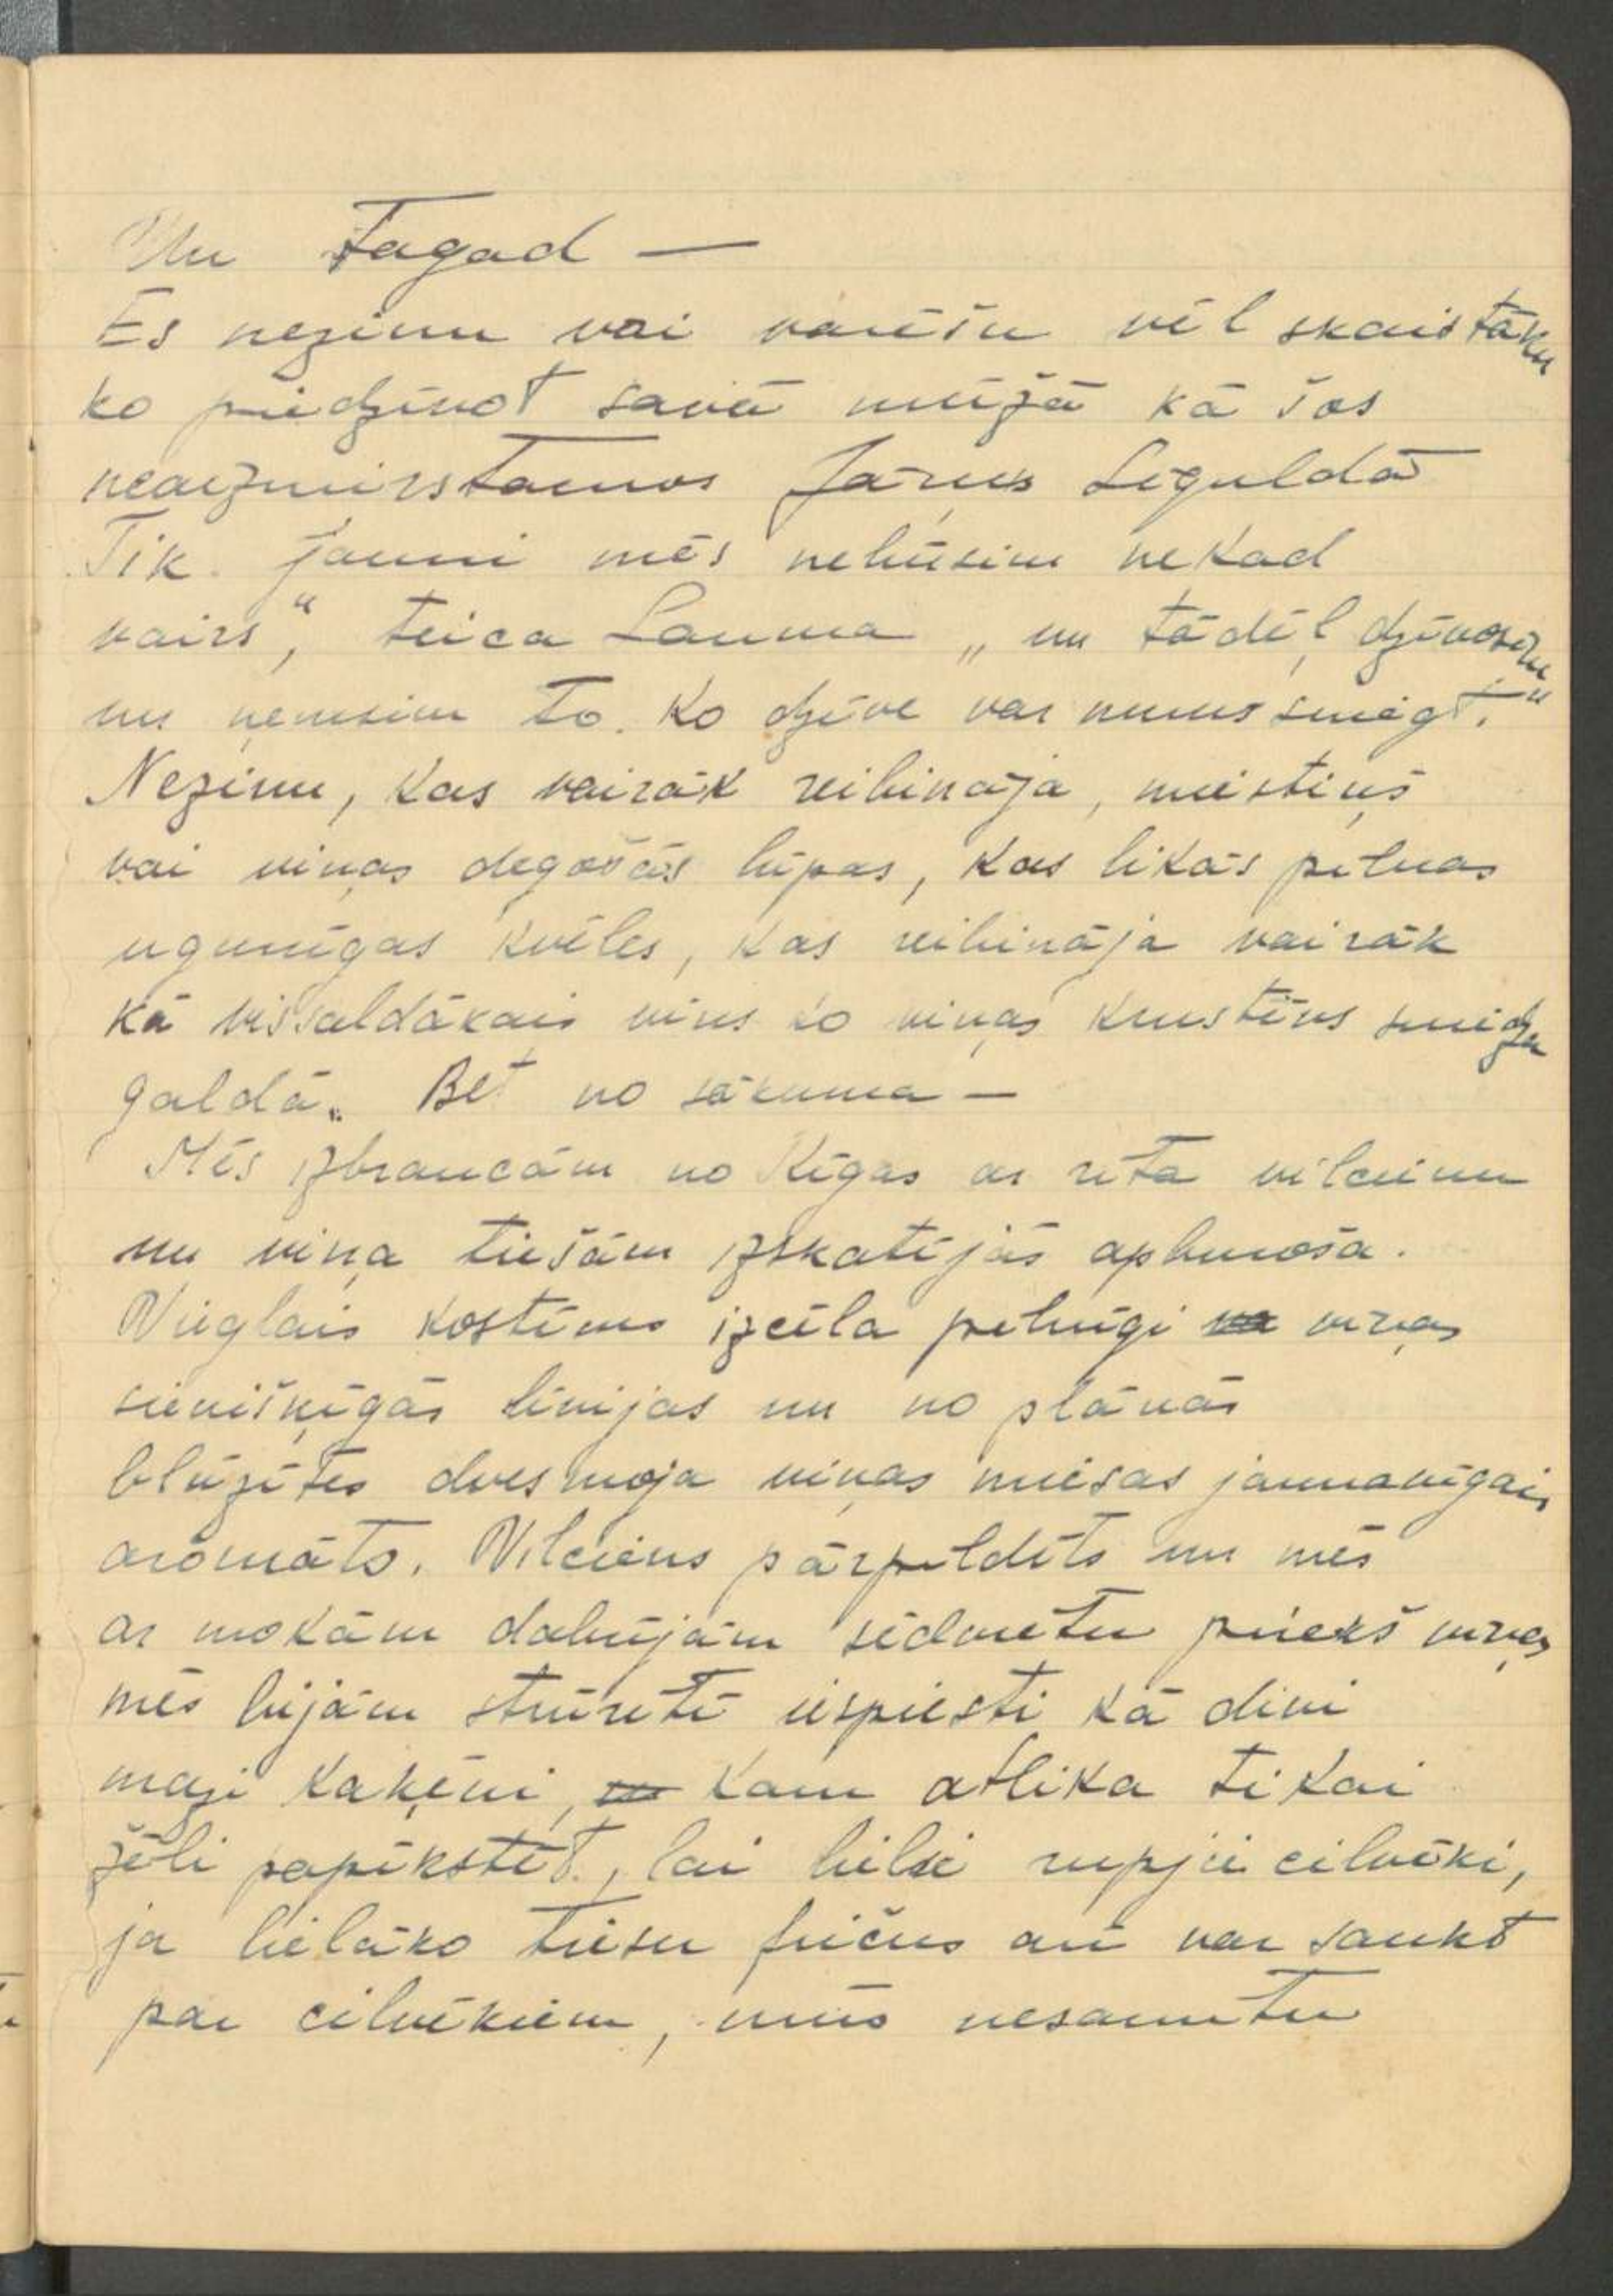 Un tagad —
Es nezinu vai varēšu vēl skaistāku
ko piedzīvot savā mūžā kā šos
neaizmirstamos Jāņus Siguldā
Tik jauni mēs nebūsim nekad
vairs", teica Lauma „un tādēļ dzīvosim
un ņemsim to. ko dzīve var mums sniegt."
Nezinu, kas vairāk reibināja, miestiņš
vai viņas degošās lūpas, kas likās pilnas
ugunīgas kvēles, kas reibināja vairāk
kā vissaldākais vīns ko viņas krusttēvs sniedza
galdā. Bet no sākuma —
Mēs izbraucām no Rīgas ar rīta vilcienu
un viņa tiešām izskatījās apburoša.
Vieglais kostīms izcēla pilnīgi viņas
sievišķīgās līnijas un no plānās
blūzītes dvesmoja viņas miesas jaunavīgais
aromāts. Vilciens pārpildīts un mēs
ar mokām dabūjām sēdvietu priekš viņas
mēs bijām stūrītī iespiesti kā divi
mazi kaķēni, kam atlika tikai
žēli papīkstēt, lai lielie rupjie cilvēki,
ja lielāko tiesu fričus arī var saukt
par cilvēkiem, mūs nesamītu